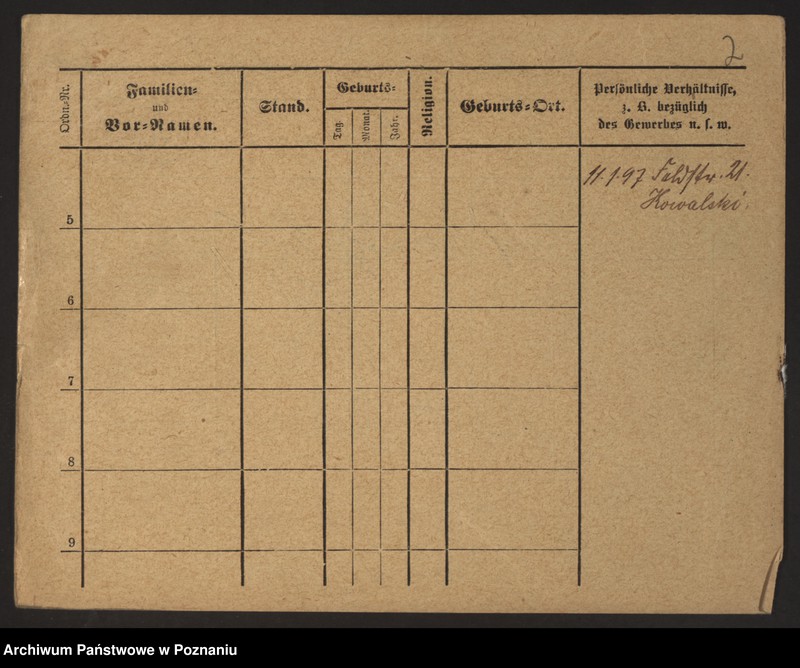 2
Ordn.-Nr.
Familien-
und
Vor-Namen.
Stand.
Geburts-
Tag.
Monat.
Jahr.
Religion.
Geburts-Ort.
Persönliche Verhältnisse,
z. B. bezüglich
des Gewerbes u. s. w.
11.1.97 Feldstr. 21.
Kowalski.
5
6
7
8
9
Archiwum Państwowe w Poznaniu